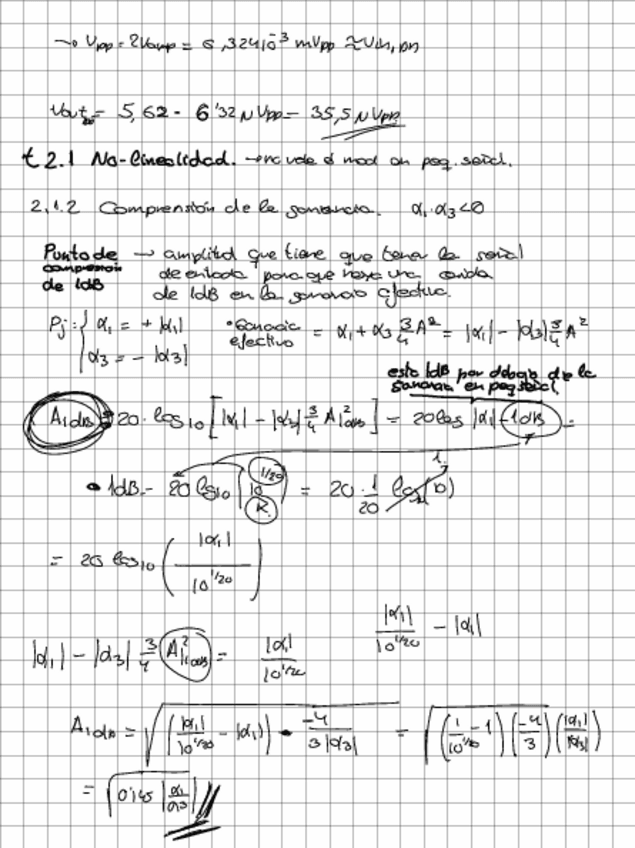 → Vpp = 2Vamp = 6,324·10⁻³ mVpp ≈ Vin, pp
Vout = 5,62 · 6'32 μVpp = 35,5 μVpp
t 2.1 No-linealidad. → no vale el mod en peq. señal.
2.1.2 Comprensión de la ganancia. α₁·α₃<0
Punto de compresión de 1dB → amplitud que tiene que tener la señal
de entrada para que haya una caída
de 1dB en la ganancia efectiva.
Pj: { α₁ = + |α₁| • Ganancia efectiva = α₁ + α₃ 3/4 A² = |α₁| - |α₃| 3/4 A²
α₃ = - |α₃|
esto 1dB por debajo de la
ganancia en peq señal
A₁dB = 20 · log₁₀ [ |α₁| - |α₃| 3/4 A²|₁dB ] = 20 log |α₁| - 1dB =
• 1dB - 20 log₁₀ | 10^(1/20) | = 20 · 1/20 log (10) 1.
R.
= 20 log₁₀ ( |α₁| / 10^(1/20) )
|α₁| / 10^(1/20) - |α₁|
|α₁| - |α₃| 3/4 A²|₁dB = |α₁| / 10^(1/20)
A₁dB = √( ( |α₁| / 10^(1/20) - |α₁| ) · -4 / 3|α₃| ) = √( ( 1/10^(1/20) - 1 ) ( -4/3 ) ( |α₁| / |α₃| ) )
= √( 0'145 | α₁/α₃ | )